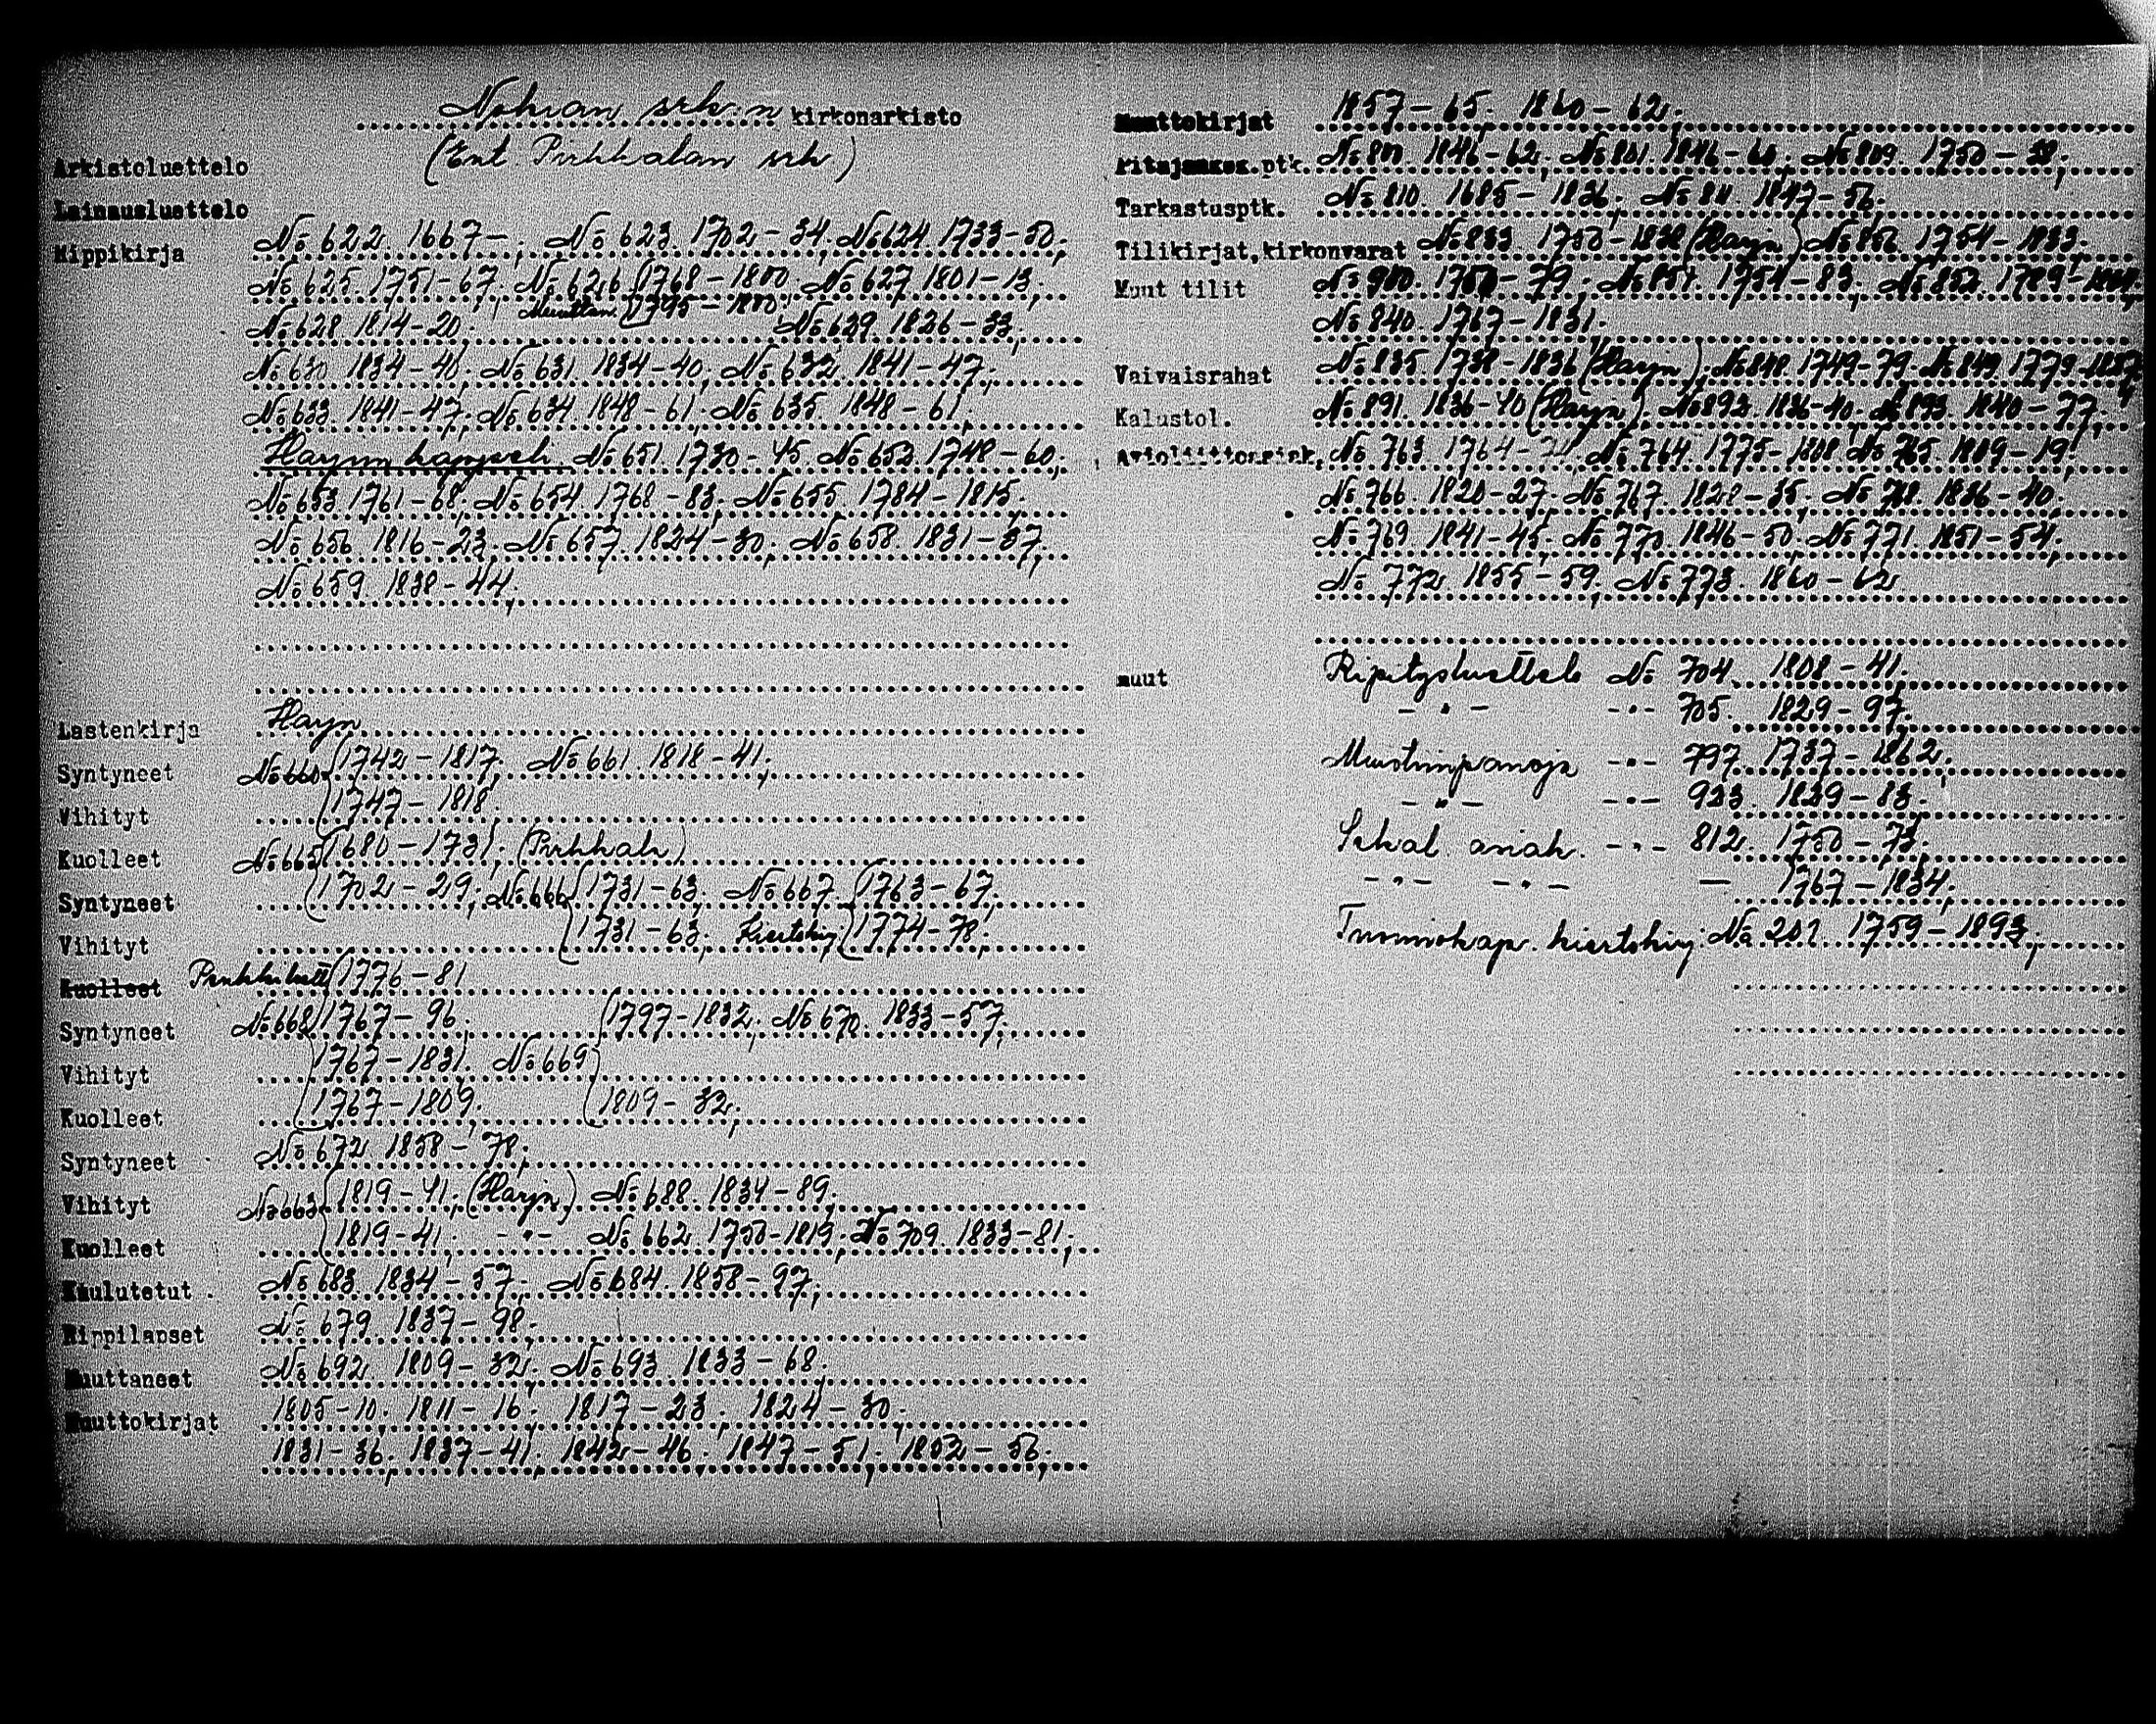 Nokian srk:n kirkonarkisto
(Ent. Pirkkalan srk)
Arkistoluettelo
Lainausluettelo
Rippikirja № 622. 1667-; № 623. 1702-34. № 624. 1733-50;
№ 625. 1751-67; № 626 {1768-1800; № 627. 1801-13;
Muuttan. {1795-1800;
№ 628. 1814-20; № 629. 1826-33;
№ 630. 1834-40; № 631. 1834-40; № 632. 1841-47;
№ 633. 1841-47; № 634. 1848-61; № 635. 1848-61;
Harjun kappeli. № 651. 1730-45. № 652. 1748-60;
№ 653. 1761-68; № 654. 1768-83; № 655. 1784-1815;
№ 656. 1816-23; № 657. 1824-30; № 658. 1831-37;
№ 659. 1838-44;
Lastenkirja Harjn
Syntyneet № 660 {1742-1817; № 661. 1818-41;
Vihityt {1747-1818;
Kuolleet № 665 {1680-1731; (Pirkkala)
Syntyneet {1702-29; № 666 {1731-63; № 667 {1763-67;
Vihityt {1731-63; Kiertokirj. {1774-78;
Kuolleet Penkkiluett. {1776-81
Syntyneet № 668 {1767-96; {1797-1832; № 670. 1833-57;
Vihityt {1767-1831; № 669
Kuolleet {1767-1809; {1809-32;
Syntyneet № 672. 1858-78;
Vihityt № 663 {1819-41; (Harjn) № 688. 1834-89;
Kuolleet {1819-41; -"- № 662. 1750-1819; № 709. 1833-81;
Kuulutetut № 683. 1834-57; № 684. 1858-97;
Rippilapset № 679. 1837-98;
Muuttaneet № 692. 1809-32; № 693. 1833-68;
Muuttokirjat 1805-10; 1811-16; 1817-23; 1824-30;
1831-36; 1837-41; 1842-46; 1847-51; 1852-56;
Muuttokirjat 1857-65; 1860-62;
Pitäjänkok.ptk. 1846-62; № 801. № 809. 1750-
Tarkastusptk. № 810. 1685-1836; № 811. 1847-56;
Tilikirjat,kirkonvarat № 833. 1750-1838 (Harjn) 1754-1833.
Muut tilit 1754-83;
№ 840. 1767-1831.
Vaivaisrahat № 835. 1738-1836 (Harjn); № 848. 1749-79. № 849. 1779-
Kalustol. № 891. 1836-40 (Harjn); № 892. 1836-40; № 893. 1840-77;
№ 763. 1764- № 764. 1775-1808; № 765. 1809-19;
№ 766. 1820-27; № 767. 1828-35; № 768. 1836-40;
№ 769. 1841-45; № 770. 1846-50; № 771. 1851-54;
№ 772. 1855-59; № 773. 1860-62
muut Ripitysluettelo № 704. 1808-41;
-"- -"- 705. 1829-97.
Muistiinpanoja -"- 797. 1737-1862.
-"- -"- 923. 1839-83.
Sekal. asiak. -"- 812. 1750-73.
-"- -"- — 1767-1834;
Tuomiokap. kiertokirj. № 201. 1759-1893;